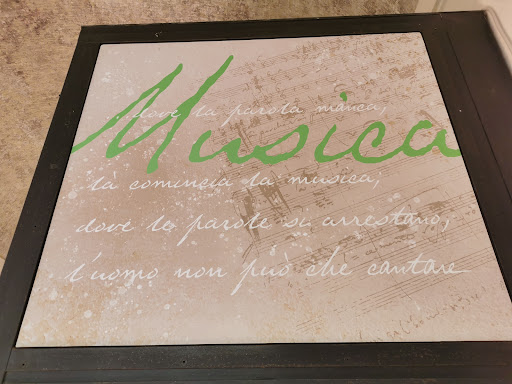 dove la parola manca,
Musica
là comincia la musica,
dove le parole si arrestano,
l'uomo non può che cantare